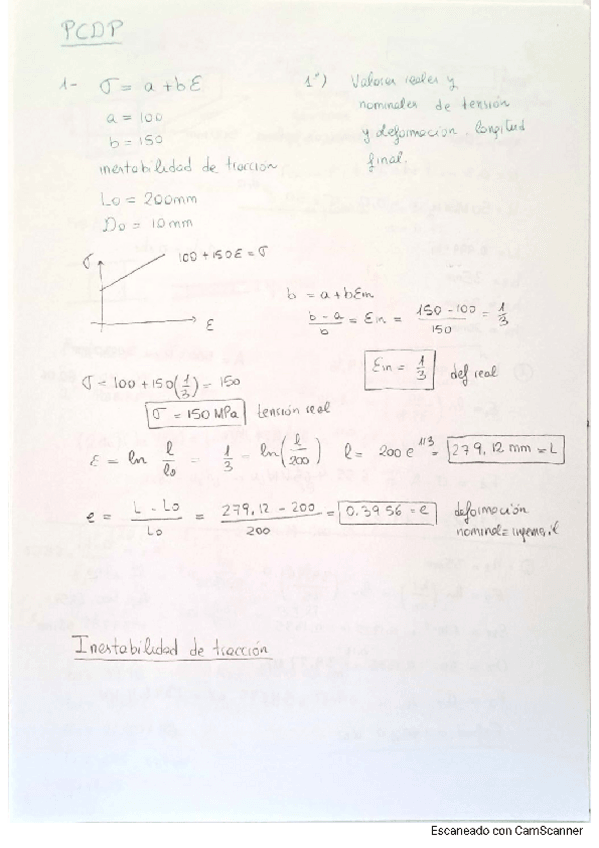 PCDP
1- σ = a + bε
a = 100
b = 150
inestabilidad de tracción
Lo = 200mm
Do = 10mm
1º) Valores reales y
nominales de tensión
y deformación. longitud
final.
σ
100 + 150ε = σ
ε
b = a + bεin
(b - a)/b = εin = (150 - 100)/150 = 1/3
εin = 1/3 def real
σ = 100 + 150(1/3) = 150
σ = 150 MPa tensión real
ε = ln l/lo = 1/3 = ln(l/200) l = 200 e^1/3 = 279,12 mm = L
e = (L - Lo)/Lo = (279,12 - 200)/200 = 0.3956 = e deformación
nominal =
Inestabilidad de tracción
Escaneado con CamScanner